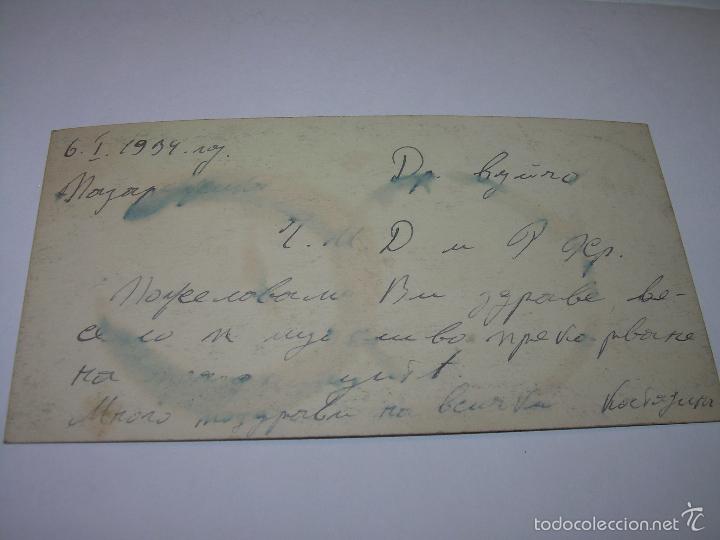 6. I. 1934. год.
Др. вуйчо
Ч. Д и Р Хр.
Пожелавам Ви здраве, ве-
село и прекарване
на
Много поздрави на всички
todocoleccion.net